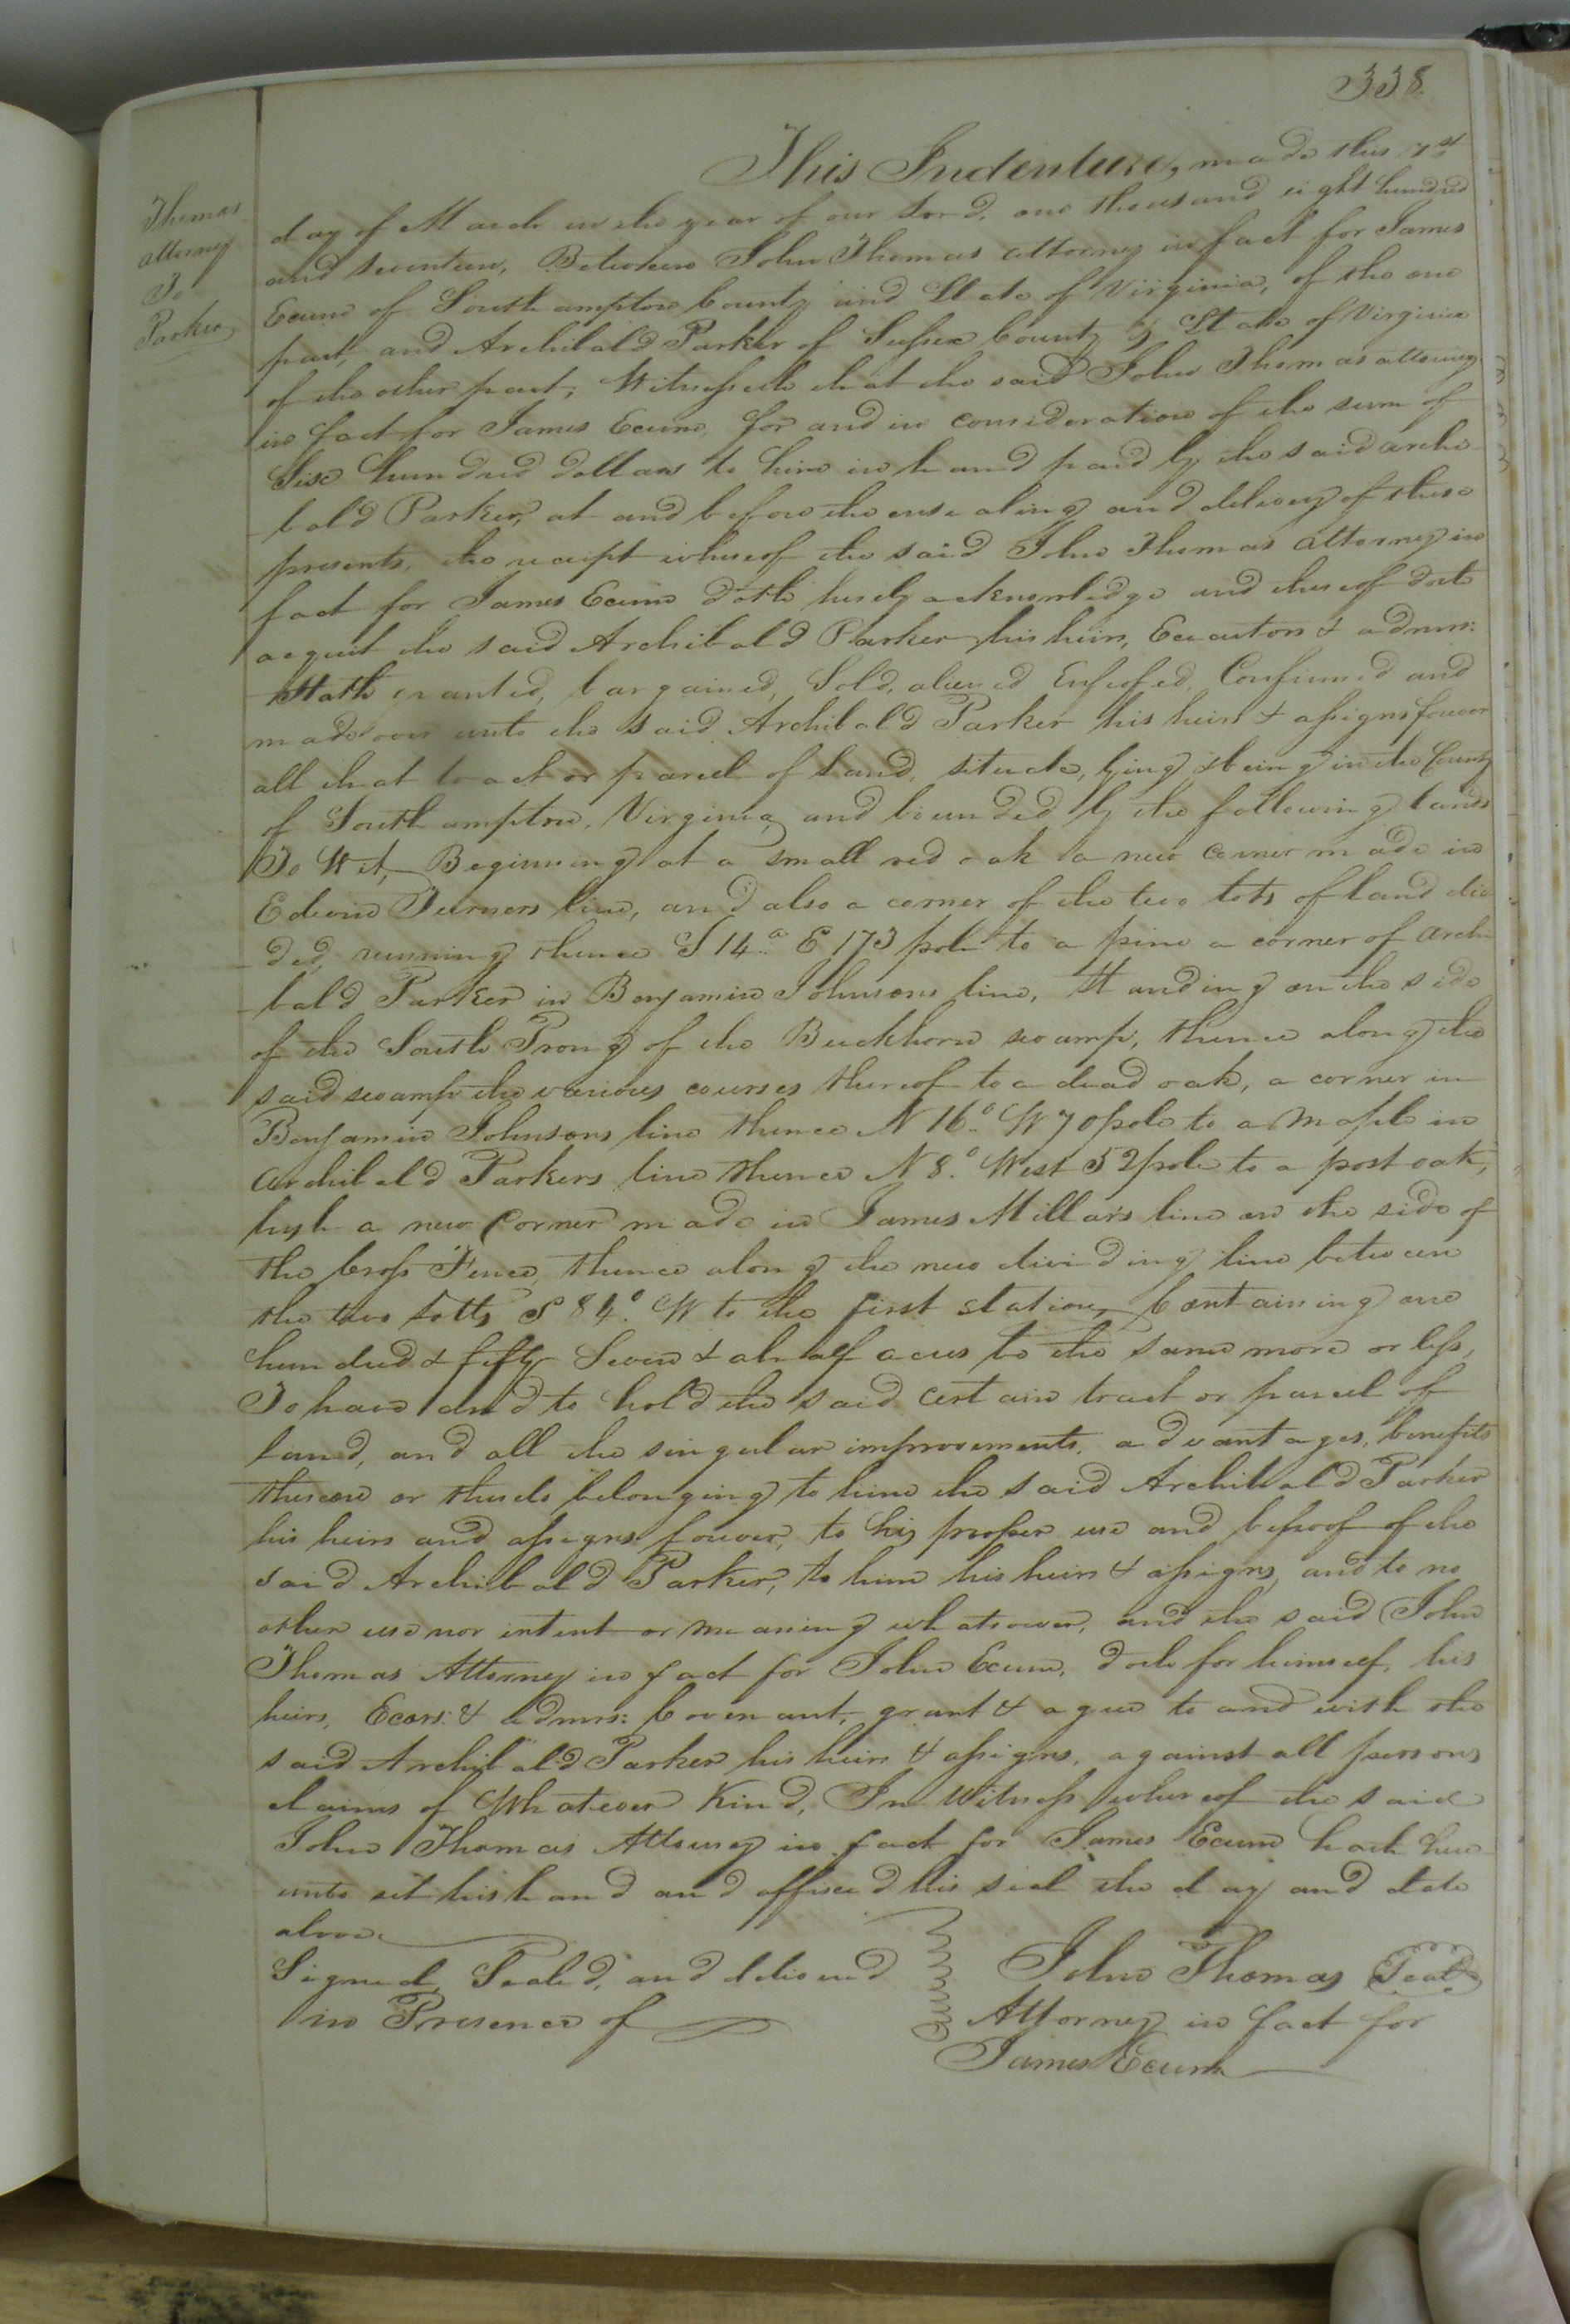 338.
Thomas
attorney
To
Parker
This Indenture, made this 1st
day of March in the year of our Lord, one thousand eight hundred
and seventeen, Between John Thomas attorney in fact for James
Ecum of Southampton County and State of Virginia, of the one
part, and Archibald Parker of Sussex County & State of Virginia
of the other part; Witnesseth that the said John Thomas attorney
in fact for James Ecum, for and in consideration of the sum of
Six hundred dollars to him in hand paid by the said Archi
-bald Parker, at and before the ensealing and delivery of these
presents, the receipt whereof the said John Thomas attorney in
fact for James Ecum doth hereby acknowledge and thereof doth
acquit the said Archibald Parker his heirs, Executors & admrs:
Hath granted, bargained, Sold, aliened Enfeofed, Confirmed and
made over unto the said Archibald Parker his heirs & assigns forever
all that tract or parcel of land, situate, lying & being in the County
of Southampton, Virginia, and bounded by the following lands
To Wit, Beginning at a small red oak a new corner made in
Edwin Turners line, and also a corner of the two lots of land divi
-ded, running thence S 14.° E 173 pole to a pine a corner of Archi
-bald Parker in Benjamin Johnsons line, Standing on the side
of the South Prong of the Buckhorn swamp, thence along the
said swamp the various courses thereof to a dead oak, a corner in
Benjamin Johnsons line thence N 16.° W 70 pole to a Maple in
Archibald Parkers line thence N 8.° West 52 pole to a post oak,
bush a new Corner made in James Millars line on the side of
the Cross Fence, thence along the new dividing line between
the two Lotts S 84.° W to the first station, Containing one
hundred & fifty Seven & a half acres be the same more or less,
To have and to hold the said certain tract or parcel of
land, and all the singular improvements, advantages, benefits
thereon or thereto belonging to him the said Archibald Parker
his heirs and assigns forever, to his proper use and behoof of the
said Archibald Parker, to him his heirs & assigns, and to no
other use nor intent or meaning whatsoever, and the said John
Thomas Attorney in fact for John Ecum, doth for himself, his
heirs, Ecors: & admrs: Covenant, grant & agree to and with the
said Archibald Parker his heirs & assigns, against all persons
claims of Whatever Kind, In Witness whereof the said
John Thomas Attorney in fact for James Ecum hath here
unto set his hand and affixed his seal the day and date
above
Signed, Sealed, and delivered
in Presence of
John Thomas Seal
Attorney in fact for
James Ecum